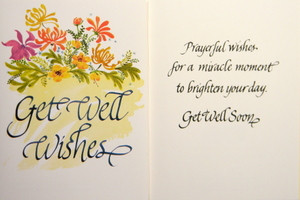 Get Well
Wishes
Prayerful wishes
for a miracle moment
to brighten your day.
Get Well Soon